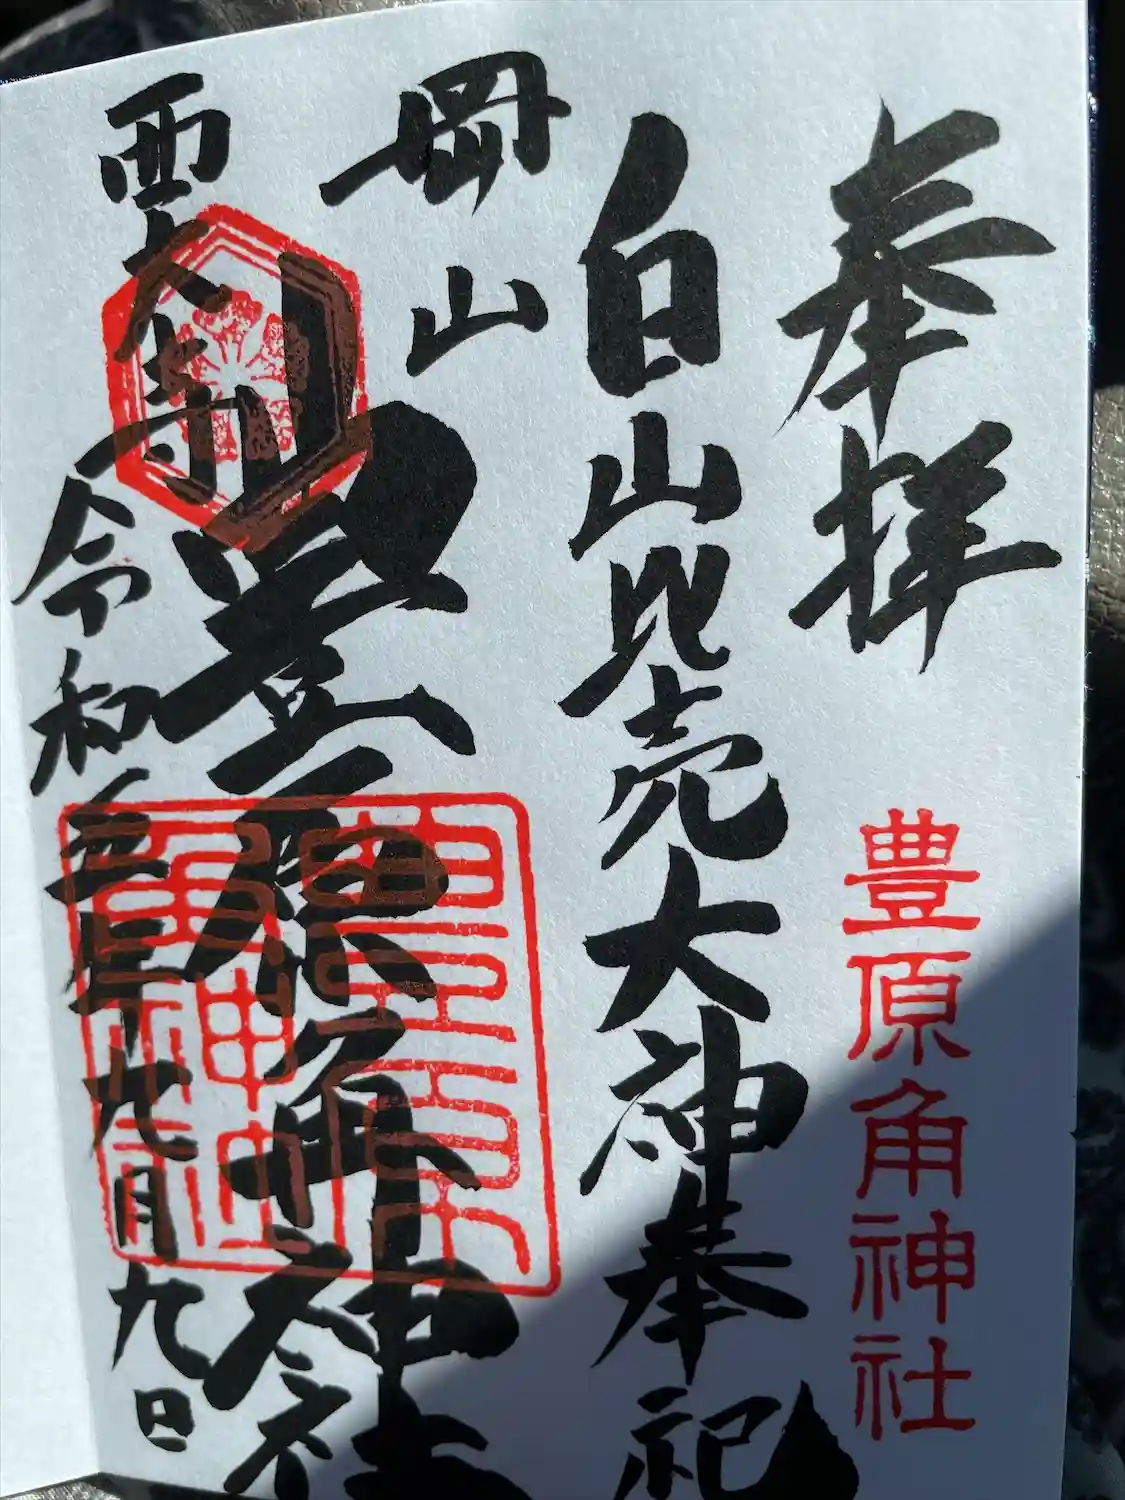 奉拝
豊原角神社
白山比売大神奉祀
岡山
豊原角神社
西大寺
令和三年九月九日